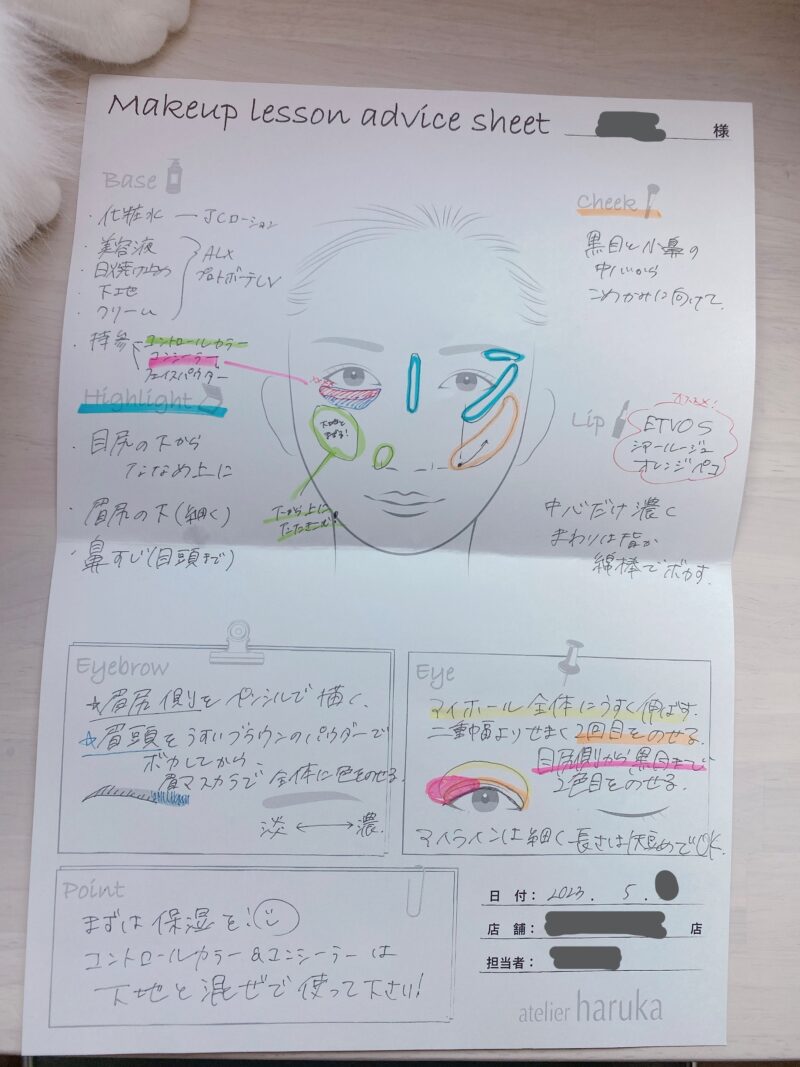 Makeup lesson advice sheet
様
Base
・化粧水 — JCローション
・美容液
・日焼け止め
・下地
・クリーム
ALX
プロトポーテLV
・持参
コントロールカラー
コンシーラー
フェイスパウダー
Highlight
・目尻の下から
ななめ上に
・眉尻の下(細く)
・鼻すじ(目頭まで)
下地と
まぜる!
下から上に
たたきこむ!
Cheek
黒目と小鼻の
中心から
こめかみに向けて
Lip
オススメ!
ETVOS
シアールージュ
オレンジペコ
中心だけ濃く
まわりは指か
綿棒でボカす.
Eyebrow
☆眉尻側をペンシルで描く.
☆眉頭をうすいブラウンのパウダーで
ボカしてから、
眉マスカラで全体に色をのせる.
淡 ↔ 濃
Eye
アイホール全体にうすく伸ばす.
二重幅よりせまく2回目をのせる.
目尻側から黒目まで
2色目をのせる.
アイラインは細く長さは短めでOK.
Point
まずは保湿を!
コントロールカラー&コンシーラーは
下地と混ぜて使って下さい!
日付: 2023. 5.
店舗: 店
担当者:
atelier haruka